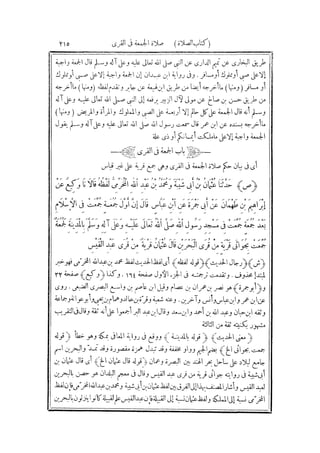 (كتاب الصلاة) صلاة الجمعة فى القرى ٢١٥
طريق البخارى عن تميم الدارى عن النبى صلى الله تعالى عليه وعلى آله وسلم قال الجمعة واجبة
إلا على صبى أو مملوك أو مسافر. وفى رواية ابن عبدان إن الجمعة واجبة إلا على صبى أو مملوك
أو مسافر (ومنها) ما أخرجه أيضا من طريق ابن لهيعة عن جابر وتقدم لفظه (ومنها) ما أخرجه
من طريق حسن بن صالح عن مولى لآل الزبير يرفعه إلى النبى صلى الله تعالى عليه وعلى آله
وسلم أنه قال الجمعة على كل حالم إلا أربعة على الصبى والمملوك والمرأة والمريض (ومنها)
ما أخرجه بسنده عن ابن عمر قال سمعت رسول الله صلى الله تعالى عليه وعلى آله وسلم يقول
الجمعة واجبة إلا على ماملكت أيمانكم أو ذى علة
باب الجمعة فى القرى
أى فى بيان حكم صلاة الجمعة فى القرى وهى جمع قرية على غير قياس
(ص) حَدَّثَنَا عُثْمَانُ بْنُ أَبِى شَيْبَةَ وَمُحَمَّدُ بْنُ عَبْدِ اللهِ الْمُخَرِّمِىُّ لَفْظُهُ قَالَا نَا وَكِيعٌ عَنْ
إِبْرَاهِيمَ بْنِ طَهْمَانَ عَنْ أَبِى جَمْرَةَ عَنِ ابْنِ عَبَّاسٍ قَالَ إِنَّ أَوَّلَ جُمُعَةٍ جُمِّعَتْ فِى الْإِسْلَامِ
بَعْدَ جُمُعَةٍ جُمِّعَتْ فِى مَسْجِدِ رَسُولِ اللهِ صَلَّى اللهُ تَعَالَى عَلَيْهِ وَعَلَى آلِهِ وَسَلَّمَ بِالْمَدِينَةِ لَجُمُعَةٌ
جُمِّعَتْ بِجُوَاثَى قَرْيَةٍ مِنْ قُرَى الْبَحْرَيْنِ قَالَ عُثْمَانُ قَرْيَةٌ مِنْ قُرَى عَبْدِ الْقَيْسِ
(ش) (رجال الحديث) (قوله لفظه) أى لفظ الحديث لفظ محمد بن عبد الله المخرمى فهو خبر
لمبتدإ محذوف. وتقدمت ترجمته فى الجزء الأول صفحة ١٦٤. وكذا (وكيع) صفحة ٣٢
و (أبو جمرة) هو نصر بن عمران بن عصام وقيل ابن عاصم بن واسع البصرى الضبعى. روى
عن ابن عمر وابن عباس وأنس وآخرين. وعنه شعبة
وثقه ابن حبان وعبد الله بن أحمد وابن سعد وقال ابن عبد البر أجمعوا على أنه ثقة وقال فى التقريب
مشهور بكنيته ثقة من الثالثة
(معنى الحديث) (قوله بالمدينة) ووقع فى رواية المعافى بمكة وهو خطأ (قوله
جمعت بجواثى الخ) بضم الجيم وواو مخففة وقد تبدل همزة مقصورة وقد تمد والبحرين اسم
جامع لبلاد على ساحل بحر الهند بين البصرة وعمان (قوله قال عثمان الخ) أى قال عثمان بن
أبى شيبة فى روايته جواثى قرية من قرى عبد القيس وقال فى معجم البلدان هو حصن بالبحرين
لعبد القيس وأشار المصنف بهذا إلى الفرق بين لفظ عثمان بن أبى شيبة ومحمد بن عبد الله المخرمى فإن لفظ
المخرمى نسبة إلى المملكة ولفظ عثمان نسبة إلى القبيلة فإن عبد القيس علم لقبيلة كانوا ينزلون بالبحرين